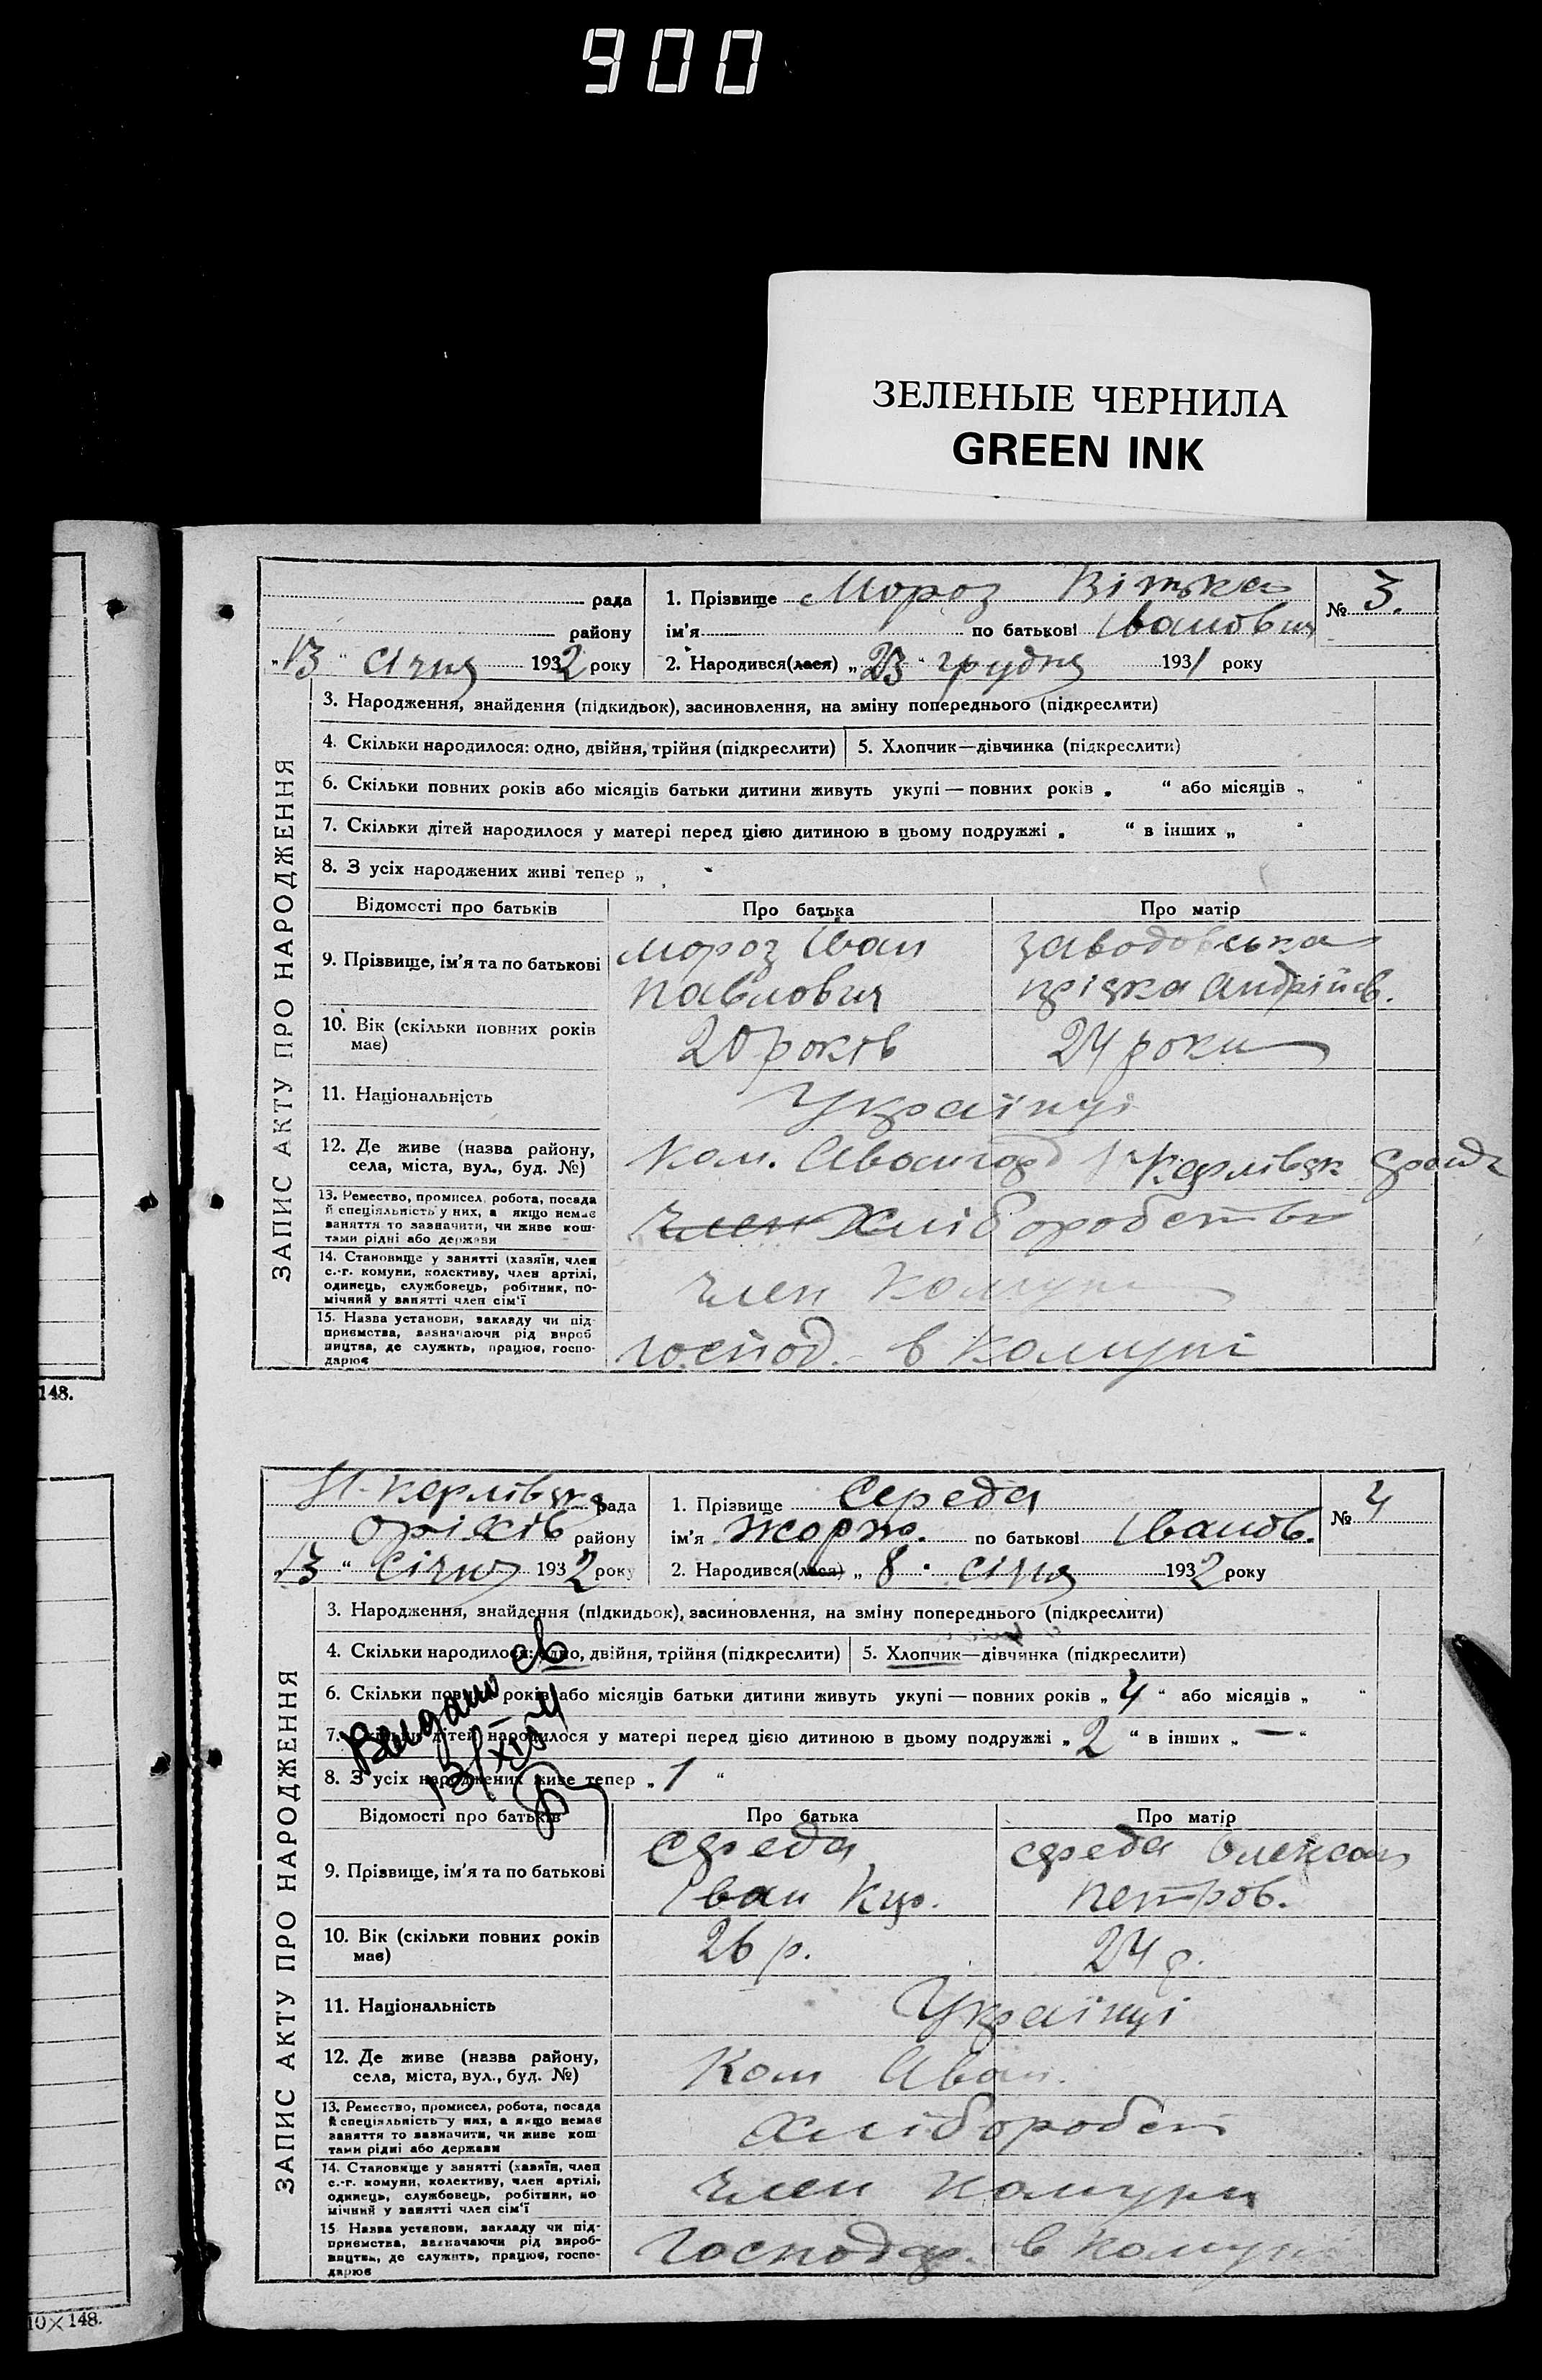 900
ЗЕЛЕНЫЕ ЧЕРНИЛА
GREEN INK
рада
району
„13“ січня 1932 року
1. Прізвище Мороз Вітька
ім'я по батькові Іванович
2. Народився(лася) „23“ грудня 1931 року
№ 3.
ЗАПИС АКТУ ПРО НАРОДЖЕННЯ
3. Народження, знайдення (підкидьок), засиновлення, на зміну попереднього (підкреслити)
4. Скільки народилося: одно, двійня, трійня (підкреслити) 5. Хлопчик—дівчинка (підкреслити)
6. Скільки повних років або місяців батьки дитини живуть укупі — повних років „ “ або місяців „ “
7. Скільки дітей народилося у матері перед цією дитиною в цьому подружжі „ “ в інших „ “
8. З усіх народжених живі тепер „ “
Відомості про батьків Про батька Про матір
9. Прізвище, ім'я та по батькові Мороз Іван Заводовська
Павлович Андрійов.
10. Вік (скільки повних років 20 років 24 роки
має)
11. Національність Українці
12. Де живе (назва району, Ком. Авангард
села, міста, вул., буд. №)
13. Ремество, промисел, робота, посада
й спеціяльність у них, а якщо немає
заняття то зазначити, чи живе кош-
тами рідні або держави
член Хліборобство
14. Становище у занятті (хазяїн, член
с.-г. комуни, колективу, член артілі,
одинець, службовець, робітник, по-
мічний у занятті член сім'ї
член комуни
15. Назва установи, закладу чи під-
приємства, зазначаючи рід вироб
ництва, де служить, працює, госпо-
дарює
господ. в комуні
148.
рада
Оріхів району
13 “ січня 1932 року
1. Прізвище Середа
ім'я Жорж. по батькові Іванов.
2. Народився(лася) „ 8 “ січня 1932 року
№ 4
ЗАПИС АКТУ ПРО НАРОДЖЕННЯ
3. Народження, знайдення (підкидьок), засиновлення, на зміну попереднього (підкреслити)
4. Скільки народилося: одно, двійня, трійня (підкреслити) 5. Хлопчик—дівчинка (підкреслити)
6. Скільки повних років або місяців батьки дитини живуть укупі — повних років „ 4 “ або місяців „ “
7. Скільки дітей народилося у матері перед цією дитиною в цьому подружжі „ 2 “ в інших „ — “
8. З усіх народжених живе тепер „ 1 “
Відомості про батьків Про батька Про матір
9. Прізвище, ім'я та по батькові Середа Середа Олексан
Іван Петров.
10. Вік (скільки повних років 26 р. 24 р.
має)
11. Національність Українці
12. Де живе (назва району, Ком Аван.
села, міста, вул., буд. №)
13. Ремество, промисел, робота, посада
й спеціяльність у них, а якщо немає
заняття то зазначити, чи живе кош
тами рідні або держави
Хлібороб
14. Становище у занятті (хазяїн, член
с.-г. комуни, колективу, член артілі,
одинець, службовець, робітник, по
мічний у занятті член сім'ї
член комуни
15. Назва установи, закладу чи під-
приємства, зазначаючи рід вироб-
ництва, де служить, працює, госпо-
дарює
Господар. в комун
10×148.